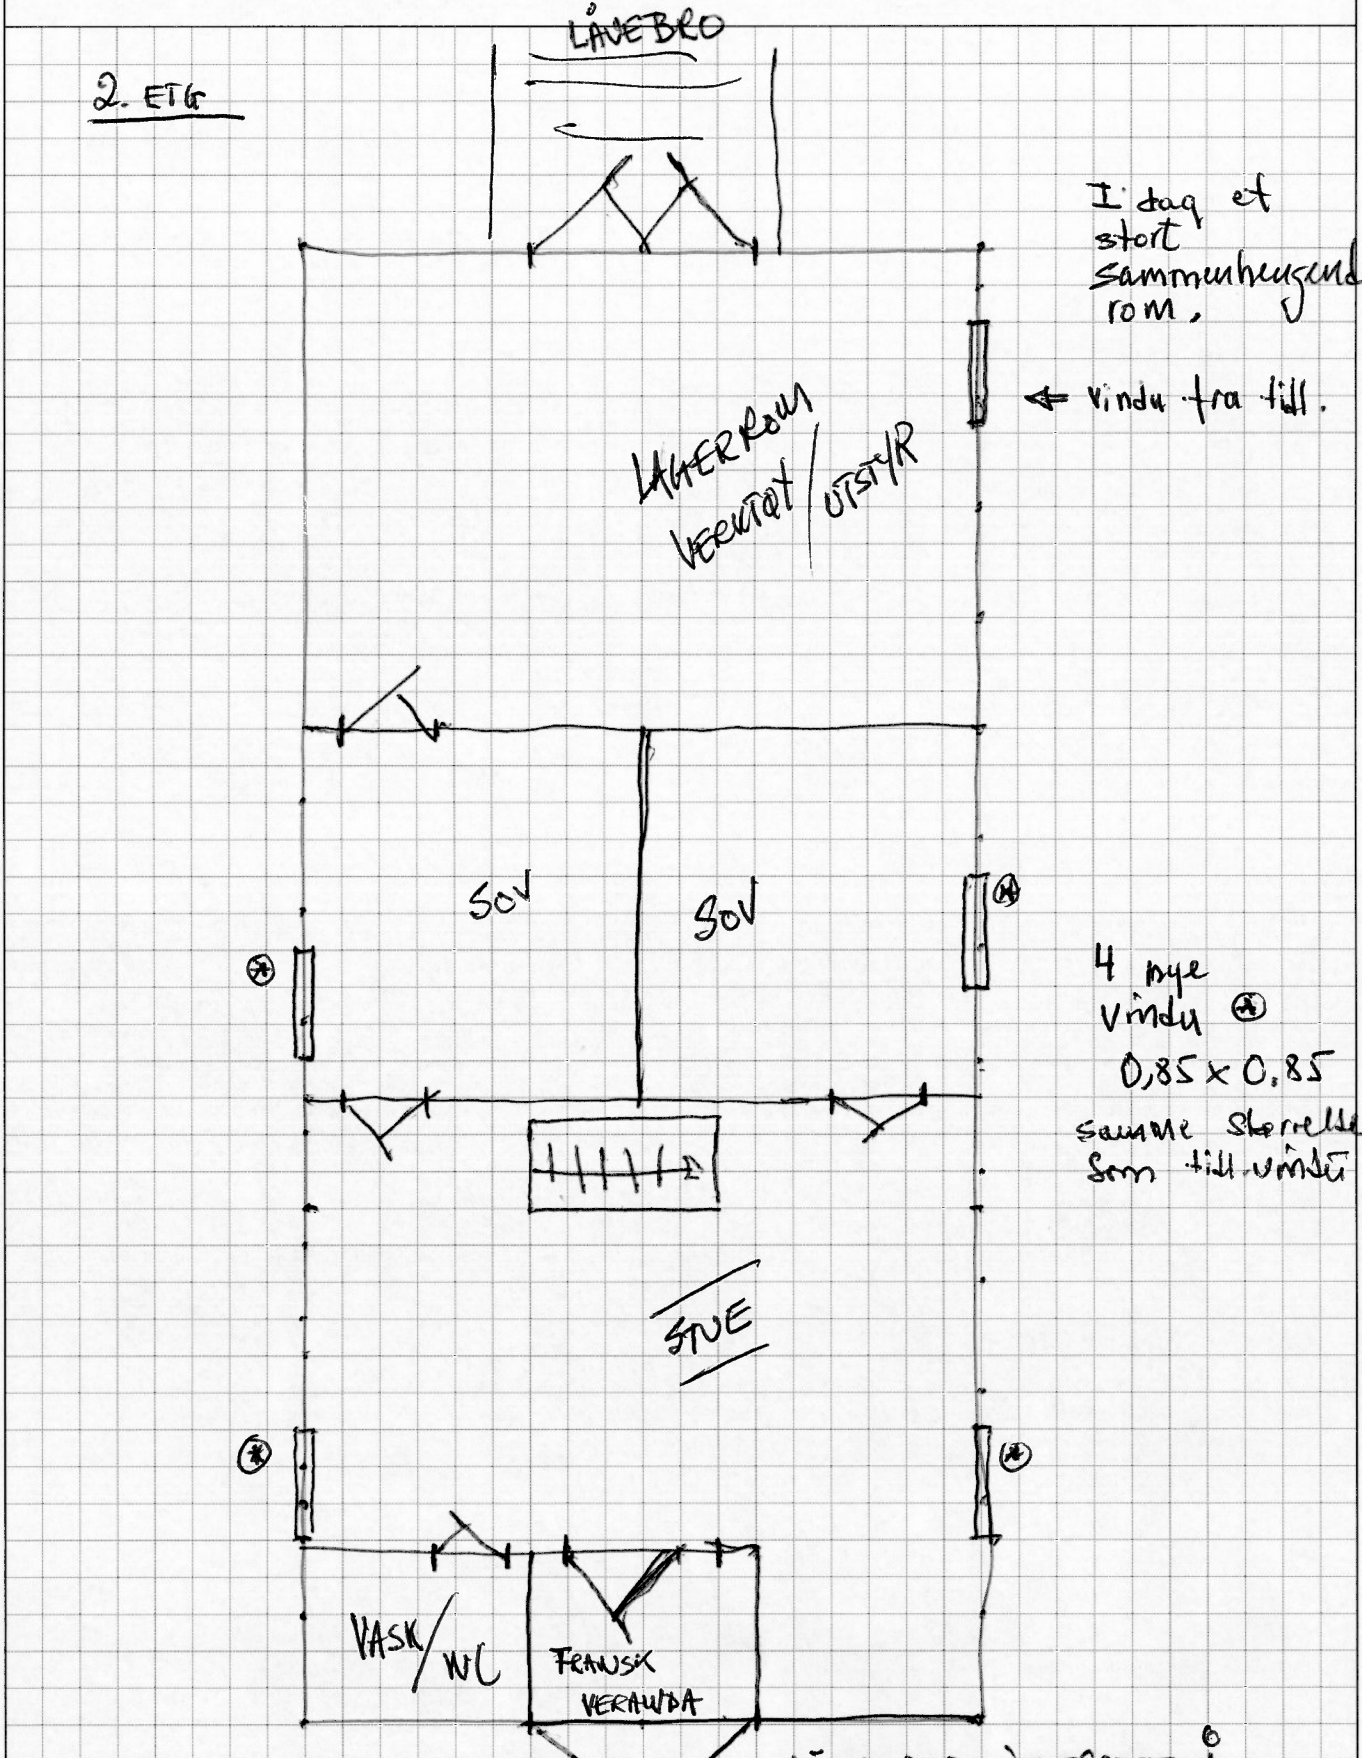 LÅVEBRO
2. ETG
I dag et
stort
sammenhengend
rom.
← vindu fra till.
LAGERROM
VERKTØY / UTSTYR
SOV
SOV
4 nye
vindu
0,85 x 0.85
samme størrelse
som till. vindu
STUE
VASK/WC
FRANSK
VERANDA